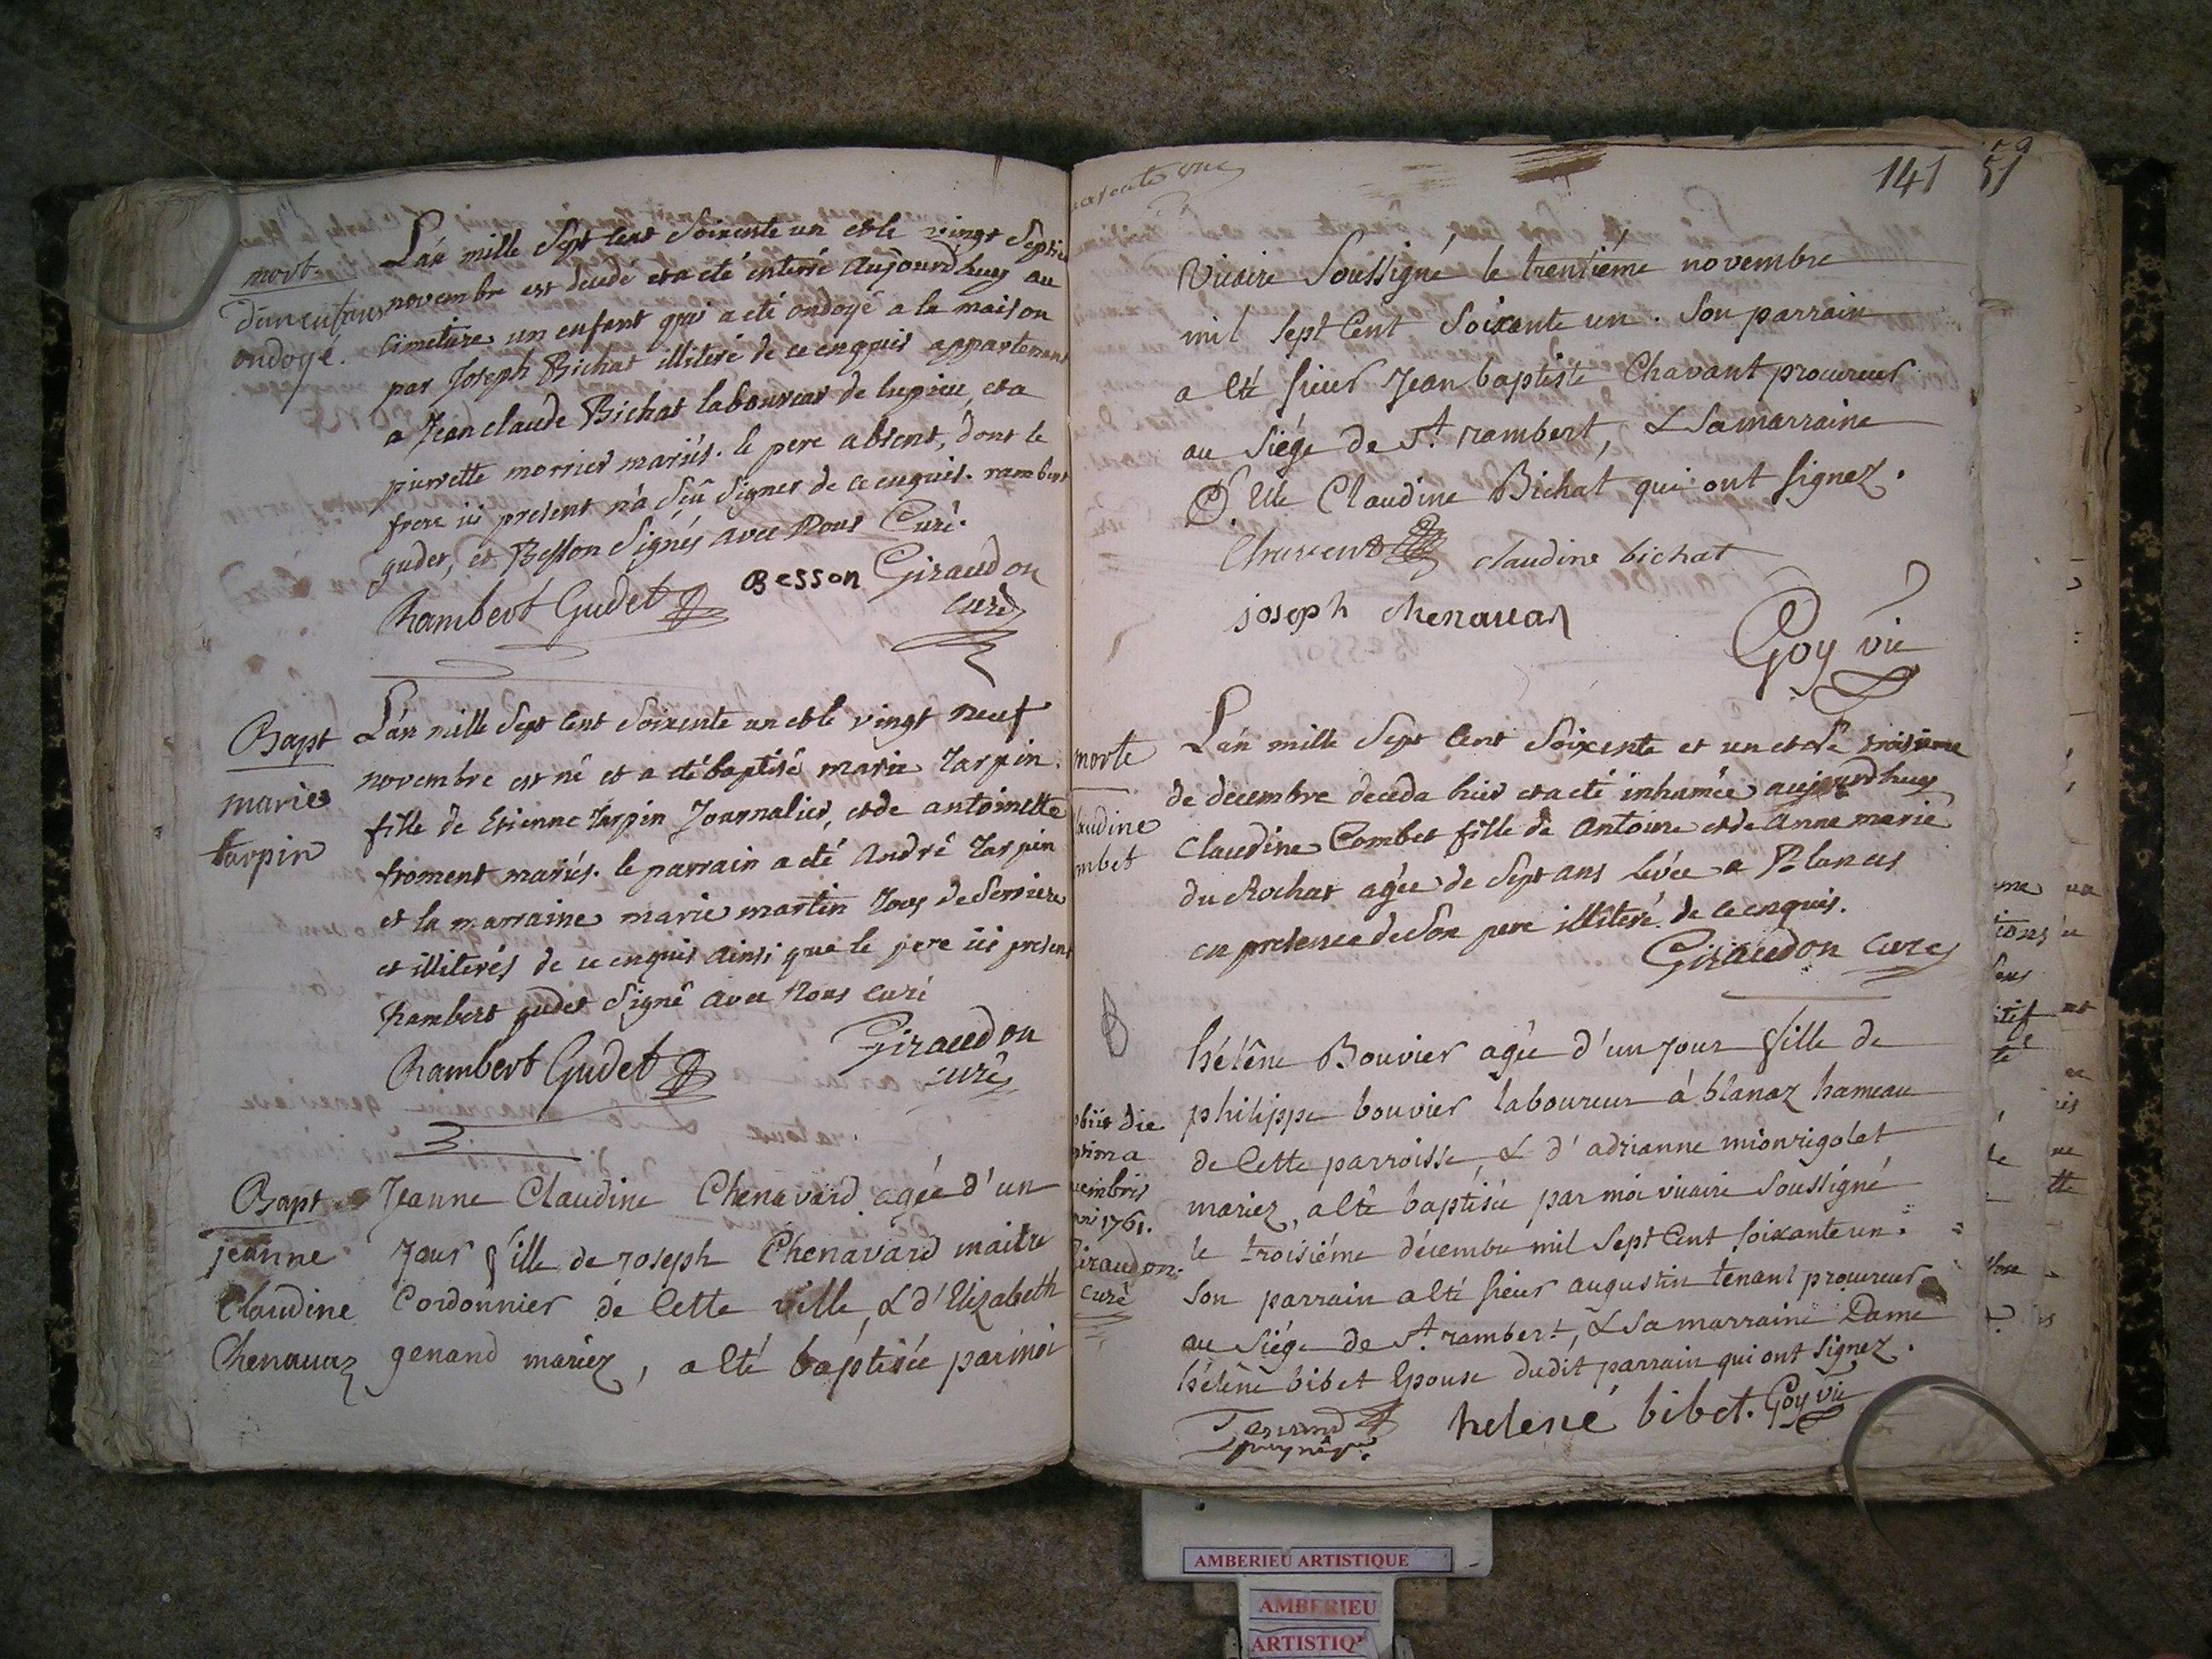 mort
d'un enfant
ondoyé.
L'an mille Sept Cent Soixente un et le vingt Septie
novembre est decedé et a eté enterré Aujourdhuy au
Cimetiere un enfant qui a eté ondoyé a la maison
par Joseph Bichat illiteré de ce enquis appartenant
a Jean claude Bichat laboureur de lupieu, et a
pierrette morrier mariés. le pere absent, dont le
frere ici present n'a Seû Signer de ce enquis. rambert
gudet, et Besson Signés avec Nous Curé.
Rambert Gudet Besson Giraudon
curé
Bapt
marie
tarpin
L'an mille Sept Cent Soixente un et le vingt neuf
novembre est né et a eté baptisé marie Tarpin
fille de Etienne Tarpin Journalier, et de antoinette
froment mariés. le parrain a eté André Tarpin
et la marraine marie martin Tous de Serriere
et illiterés de ce enquis ainsi que le pere ici present
Rambert gudet Signé avec Nous curé
Rambert Gudet Giraudon
curé
Bapt
jeanne
Claudine
Chenavaz
Jeanne Claudine Chenavard agée d'un
Jour fille de Joseph Chenavard maitre
Cordonnier de Cette ville, & d'Elizabeth
genand mariez, a Eté baptisée par moi
141 51
Vicaire Soussigné le trentiéme novembre
mil Sept Cent Soixante un. Son parrain
a Eté Sieur Jean baptiste Chavant procureur
au Siége de St. rambert, & Sa marraine
D.elle Claudine Bichat qui ont Signez.
claudine bichat
joseph chenavar
Goy vic
morte
audine
mbet
L'an mille Sept Cent Soixente et un et le troisieme
de decembre deceda hier et a eté inhumée aujourdhuy
Claudine Combet fille de Antoine et de Anne marie
du Rochat agée de Sept ans Levée a Blanas
en presence de Son pere illiteré de ce enquis.
Giraudon curé
B
obiit die
ptima
cembris
nni 1761.
Giraudon.
Curé
hélêne Bouvier agée d'un Jour fille de
philippe bouvier laboureur à blanaz hameau
de Cette parroisse, & d'adrianne mionrigolet
mariez, a Eté baptisée par moi vicaire Soussigné
le troisiéme décembre mil Sept Cent Soixante un.
Son parrain a Eté Sieur augustin tenant procureur
au Siége de St. rambert, & Sa marraine Dame
hélêne bibet Epouse dudit parrain qui ont Signez.
helené bibet. Goy vic
AMBERIEU ARTISTIQUE
AMBERIEU
ARTISTIQ